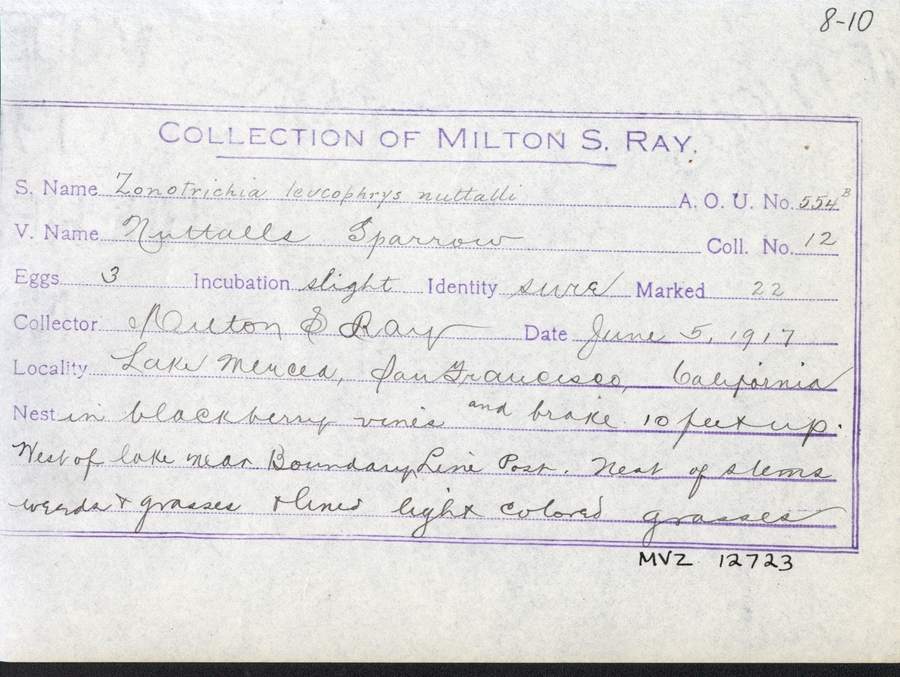 8-10
COLLECTION OF MILTON S. RAY.
S. Name Zonotrichia leucophrys nuttalli A. O. U. No. 554B
V. Name Nuttalls Sparrow Coll. No. 12
Eggs 3 Incubation slight Identity sure Marked 22
Collector Milton S Ray Date June 5, 1917
Locality Lake Merced, San Francisco, California
Nest in blackberry vines and brake 10 feet up.
West of lake near Boundary Line Post. Nest of stems
weeds & grasses & lined light colored grasses
MVZ 12723